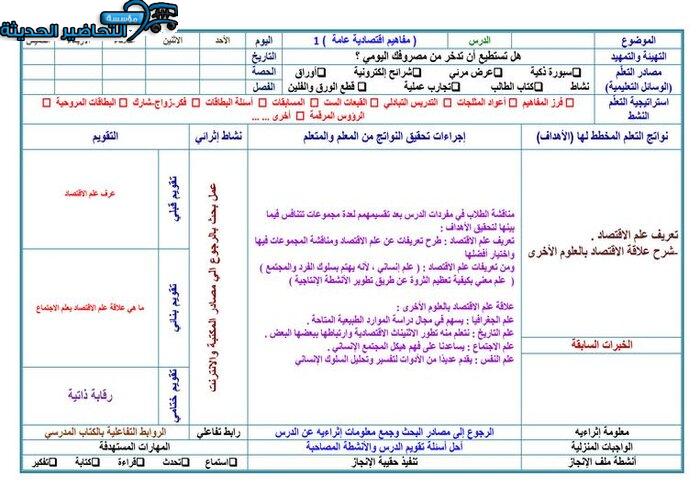 مؤسسة
التحاضير الحديثة
الموضوع الدرس ( مفاهيم اقتصادية عامة ) 1 اليوم الأحد الاثنين
التهيئة والتمهيد هل تستطيع أن تدخر من مصروفك اليومي ؟ التاريخ
مصادر التعلم سبورة ذكية عرض مرئي شرائح إلكترونية أوراق الحصة
(الوسائل التعليمية) نشاط كتاب الطالب تجارب عملية قطع الورق والفلين الفصل
استراتيجية التعلم فرز المفاهيم أعواد المثلجات التدريس التبادلي القبعات الست المسابقات أسئلة البطاقات فكر-زواج-شارك البطاقات المروحية
النشط الرؤوس المرقمة أخرى ... ...
نواتج التعلم المخطط لها (الأهداف) إجراءات تحقيق النواتج من المعلم والمتعلم نشاط إثرائي التقويم
تعريف علم الاقتصاد .
-شرح علاقة الاقتصاد بالعلوم الأخرى
الخبرات السابقة
مناقشة الطلاب في مفردات الدرس بعد تقسيمهم لعدة مجموعات تتنافس فيما
بينها لتحقيق الأهداف :
تعريف علم الاقتصاد : طرح تعريفات عن علم الاقتصاد ومناقشة المجموعات فيها
واختيار أفضلها
ومن تعريفات علم الاقتصاد : ( علم إنساني ، لأنه يهتم بسلوك الفرد والمجتمع )
( علم معني بكيفية تعظيم الثروة عن طريق تطوير الأنشطة الإنتاجية )
علاقة علم الاقتصاد بالعلوم الأخرى :
علم الجغرافيا : يسهم في مجال دراسة الموارد الطبيعية المتاحة .
علم التاريخ : نتعلم منه تطور الاقتصادية وارتباطها ببعضها البعض .
علم الاجتماع : يساعدنا على فهم هيكل المجتمع الإنساني .
علم النفس : يقدم عديدًا من الأدوات لتفسير وتحليل السلوك الإنساني
عمل بحث بالرجوع الي مصادر المكتبة والانترنت
تقويم قبلي
عرف علم الاقتصاد
تقويم بنائي
ما هي علاقة علم الاقتصاد بعلم الاجتماع
تقويم ختامي
رقابة ذاتية
معلومة إثراءيه الرجوع إلى مصادر البحث وجمع معلومات إثراءيه عن الدرس رابط تفاعلي الروابط التفاعلية بالكتاب المدرسي
الواجبات المنزلية أحل أسئلة تقويم الدرس والأنشطة المصاحبة المهارات المستهدفة
أنشطة ملف الإنجاز تنفيذ حقيبة الإنجاز استماع تحدث قراءة كتابة تفكير